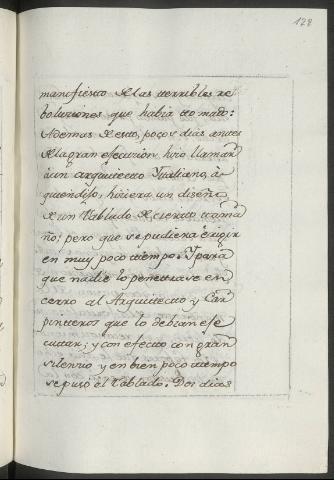 128
manifiesto de las terribles re
boluziones que habia tomado:
Ademas de esto, pocos dias antes
de la gran efecucion, hizo llamar
à un arquitecto Ytaliano, à
quien dijo, hiziera un diseño
de un tablado de cierto tama
ño; pero que se pudiera erigir
en muy poco tiempo. Y para
que nadie lo penetrase en
cerro al Arquitecto, y Car
pinteros que lo debian efe
cuttar; y con efecto con gran
silenzio y en bien poco tiempo
se puso el tablado. Dos dias